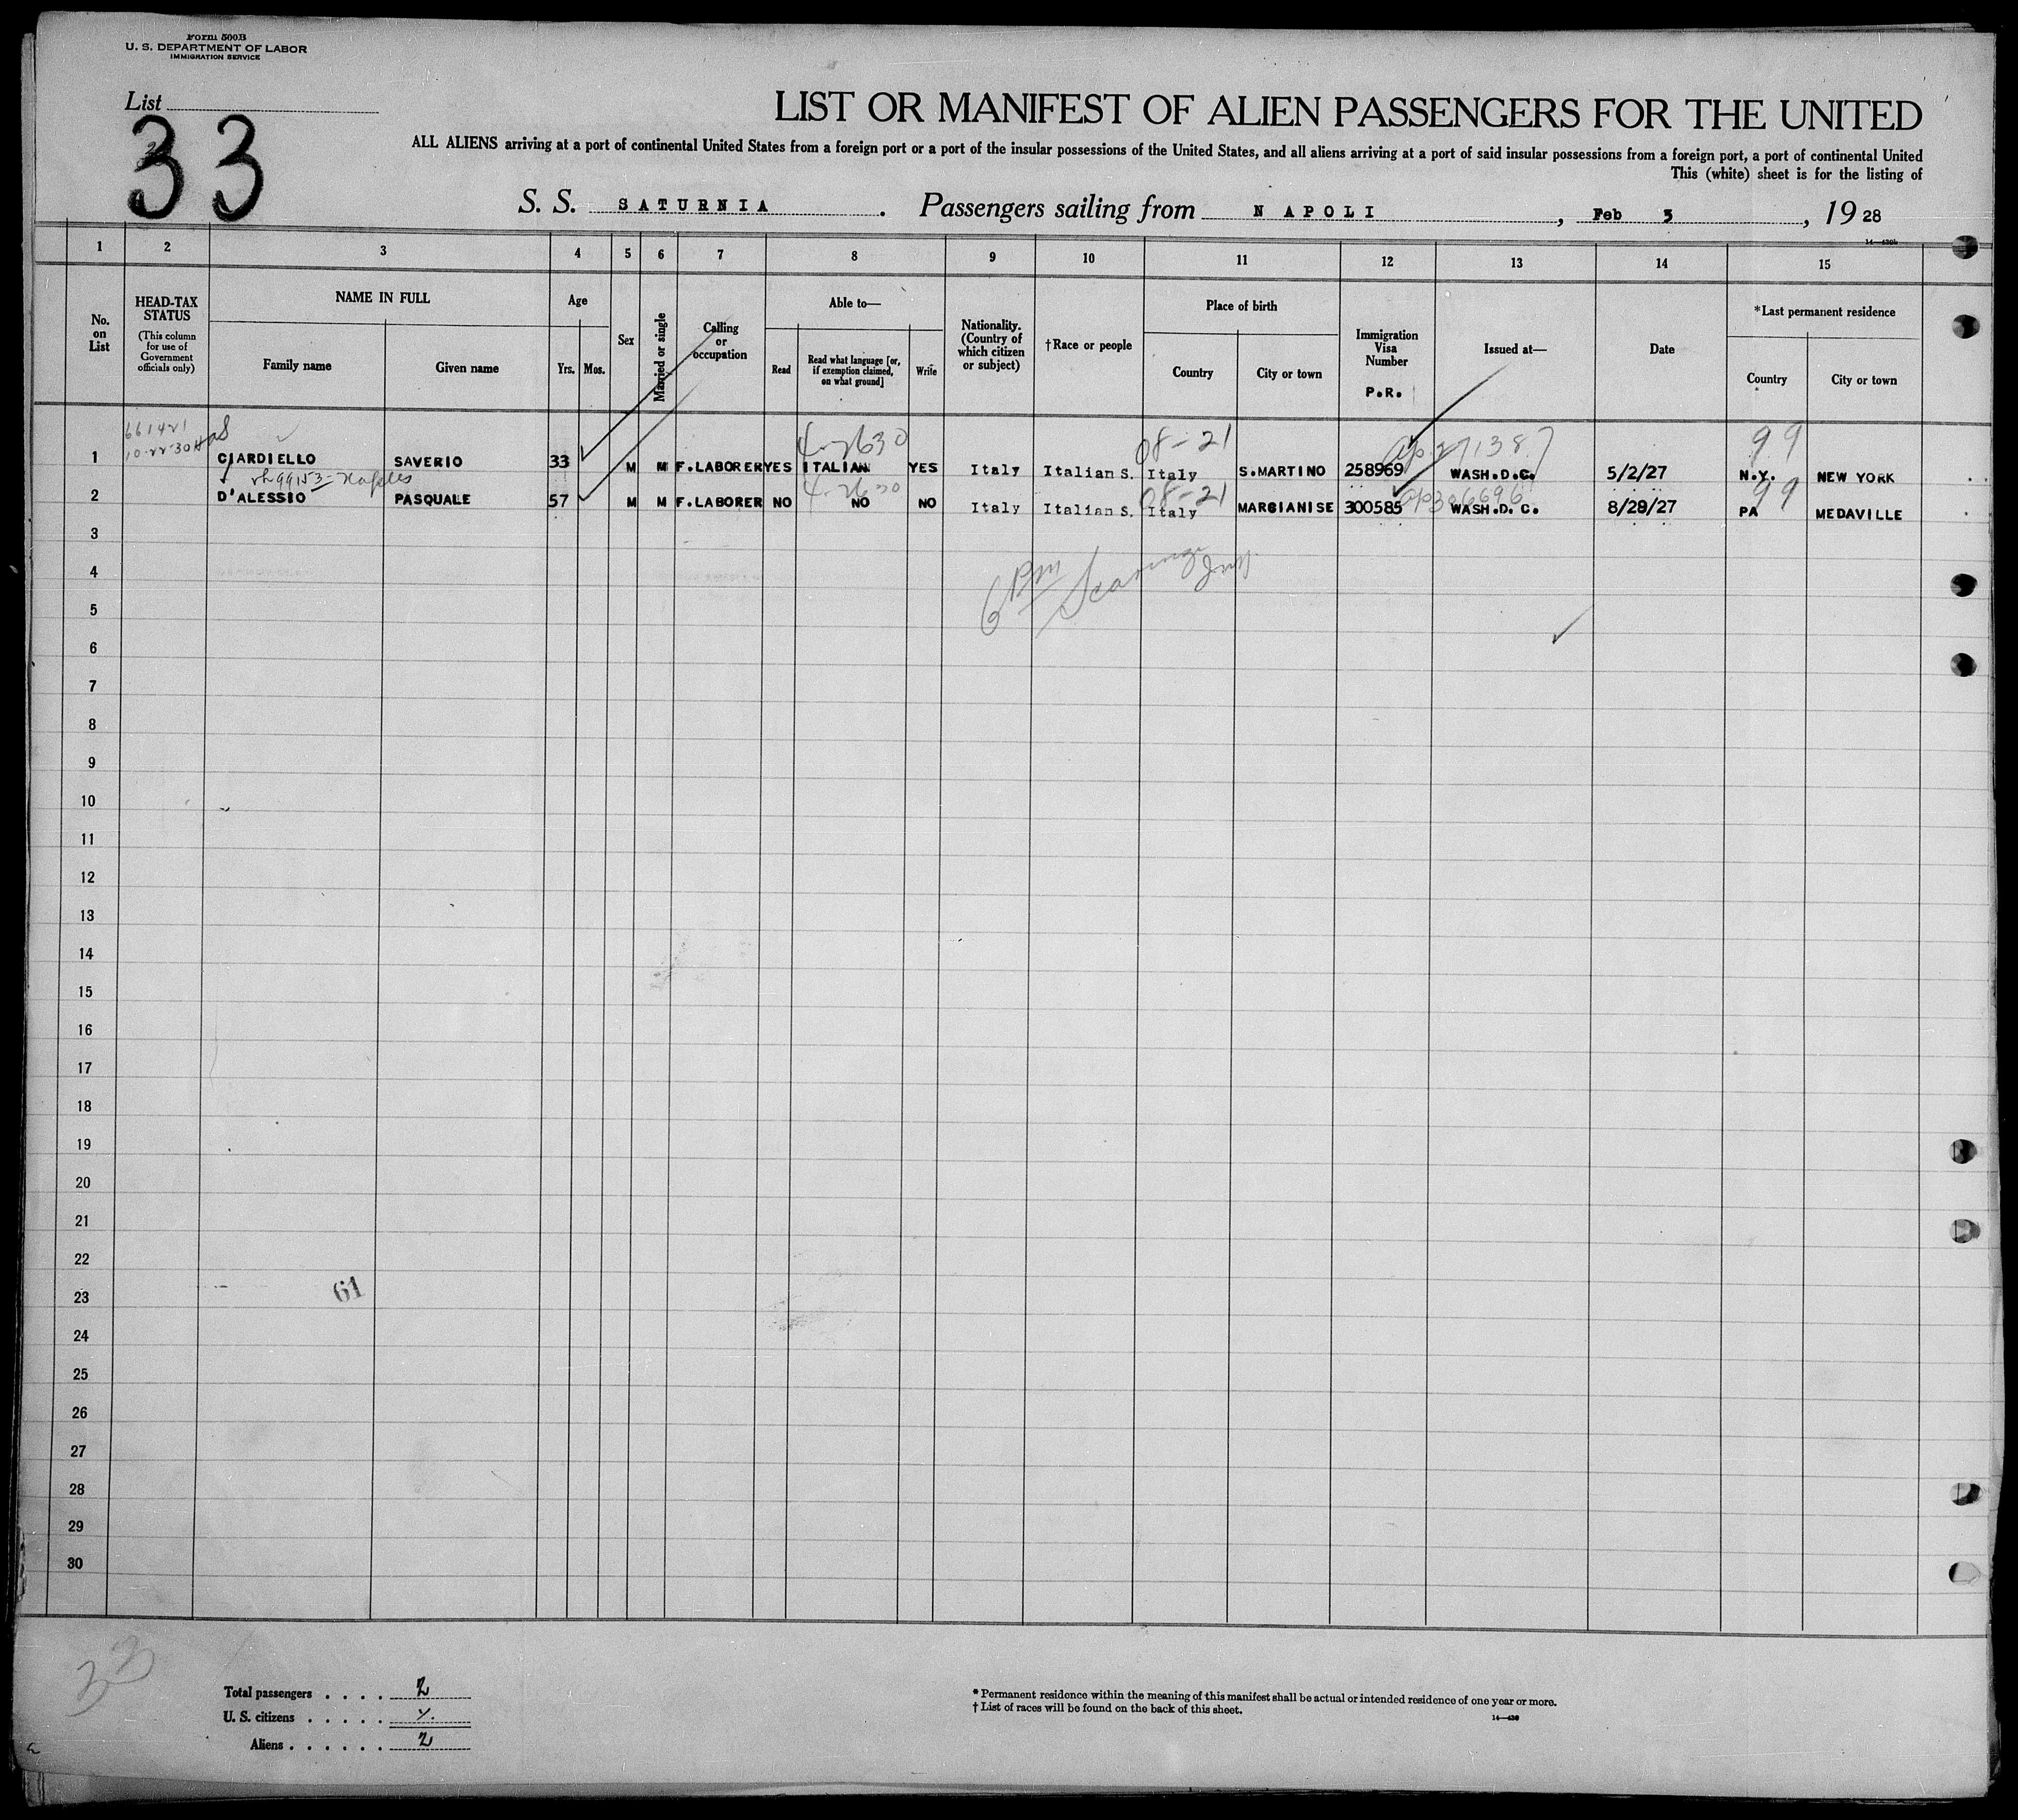 Form 500B
U. S. DEPARTMENT OF LABOR
IMMIGRATION SERVICE
List
33
LIST OR MANIFEST OF ALIEN PASSENGERS FOR THE UNITED
ALL ALIENS arriving at a port of continental United States from a foreign port or a port of the insular possessions of the United States, and all aliens arriving at a port of said insular possessions from a foreign port, a port of continental United
This (white) sheet is for the listing of
S. S. SATURNIA . Passengers sailing from NAPOLI , Feb 3 , 19 28
14—430b
1 2 3 4 5 6 7 8 9 10 11 12 13 14 15
No. on List
HEAD-TAX STATUS
(This column for use of Government officials only)
NAME IN FULL
Family name Given name
Age
Yrs. Mos.
Sex
Married or single
Calling or occupation
Able to—
Read
Read what language [or, if exemption claimed, on what ground]
Write
Nationality. (Country of which citizen or subject)
†Race or people
Place of birth
Country City or town
Immigration Visa Number
P.R.
Issued at—
Date
*Last permanent residence
Country City or town
661421
10-22-30
4-2630 08-21 271387 99
1 CIARDIELLO SAVERIO 33 M M F.LABORER YES ITALIAN YES Italy Italian S. Italy S.MARTINO 258969 WASH.D.C. 5/2/27 N.Y. NEW YORK
99153-Naples
4-2630 08-21 99
2 D'ALESSIO PASQUALE 57 M M F.LABORER NO NO NO Italy Italian S. Italy MARCIANISE 300585 WASH.D.C. 8/29/27 PA MEDAVILLE
3
4
6 PM
5
6
7
8
9
10
11
12
13
14
15
16
17
18
19
20
21
22
61
23
24
25
26
27
28
29
30
33
Total passengers . . . . 2
U. S. citizens . . . . .
Aliens . . . . . . 2
* Permanent residence within the meaning of this manifest shall be actual or intended residence of one year or more.
† List of races will be found on the back of this sheet.
14—430